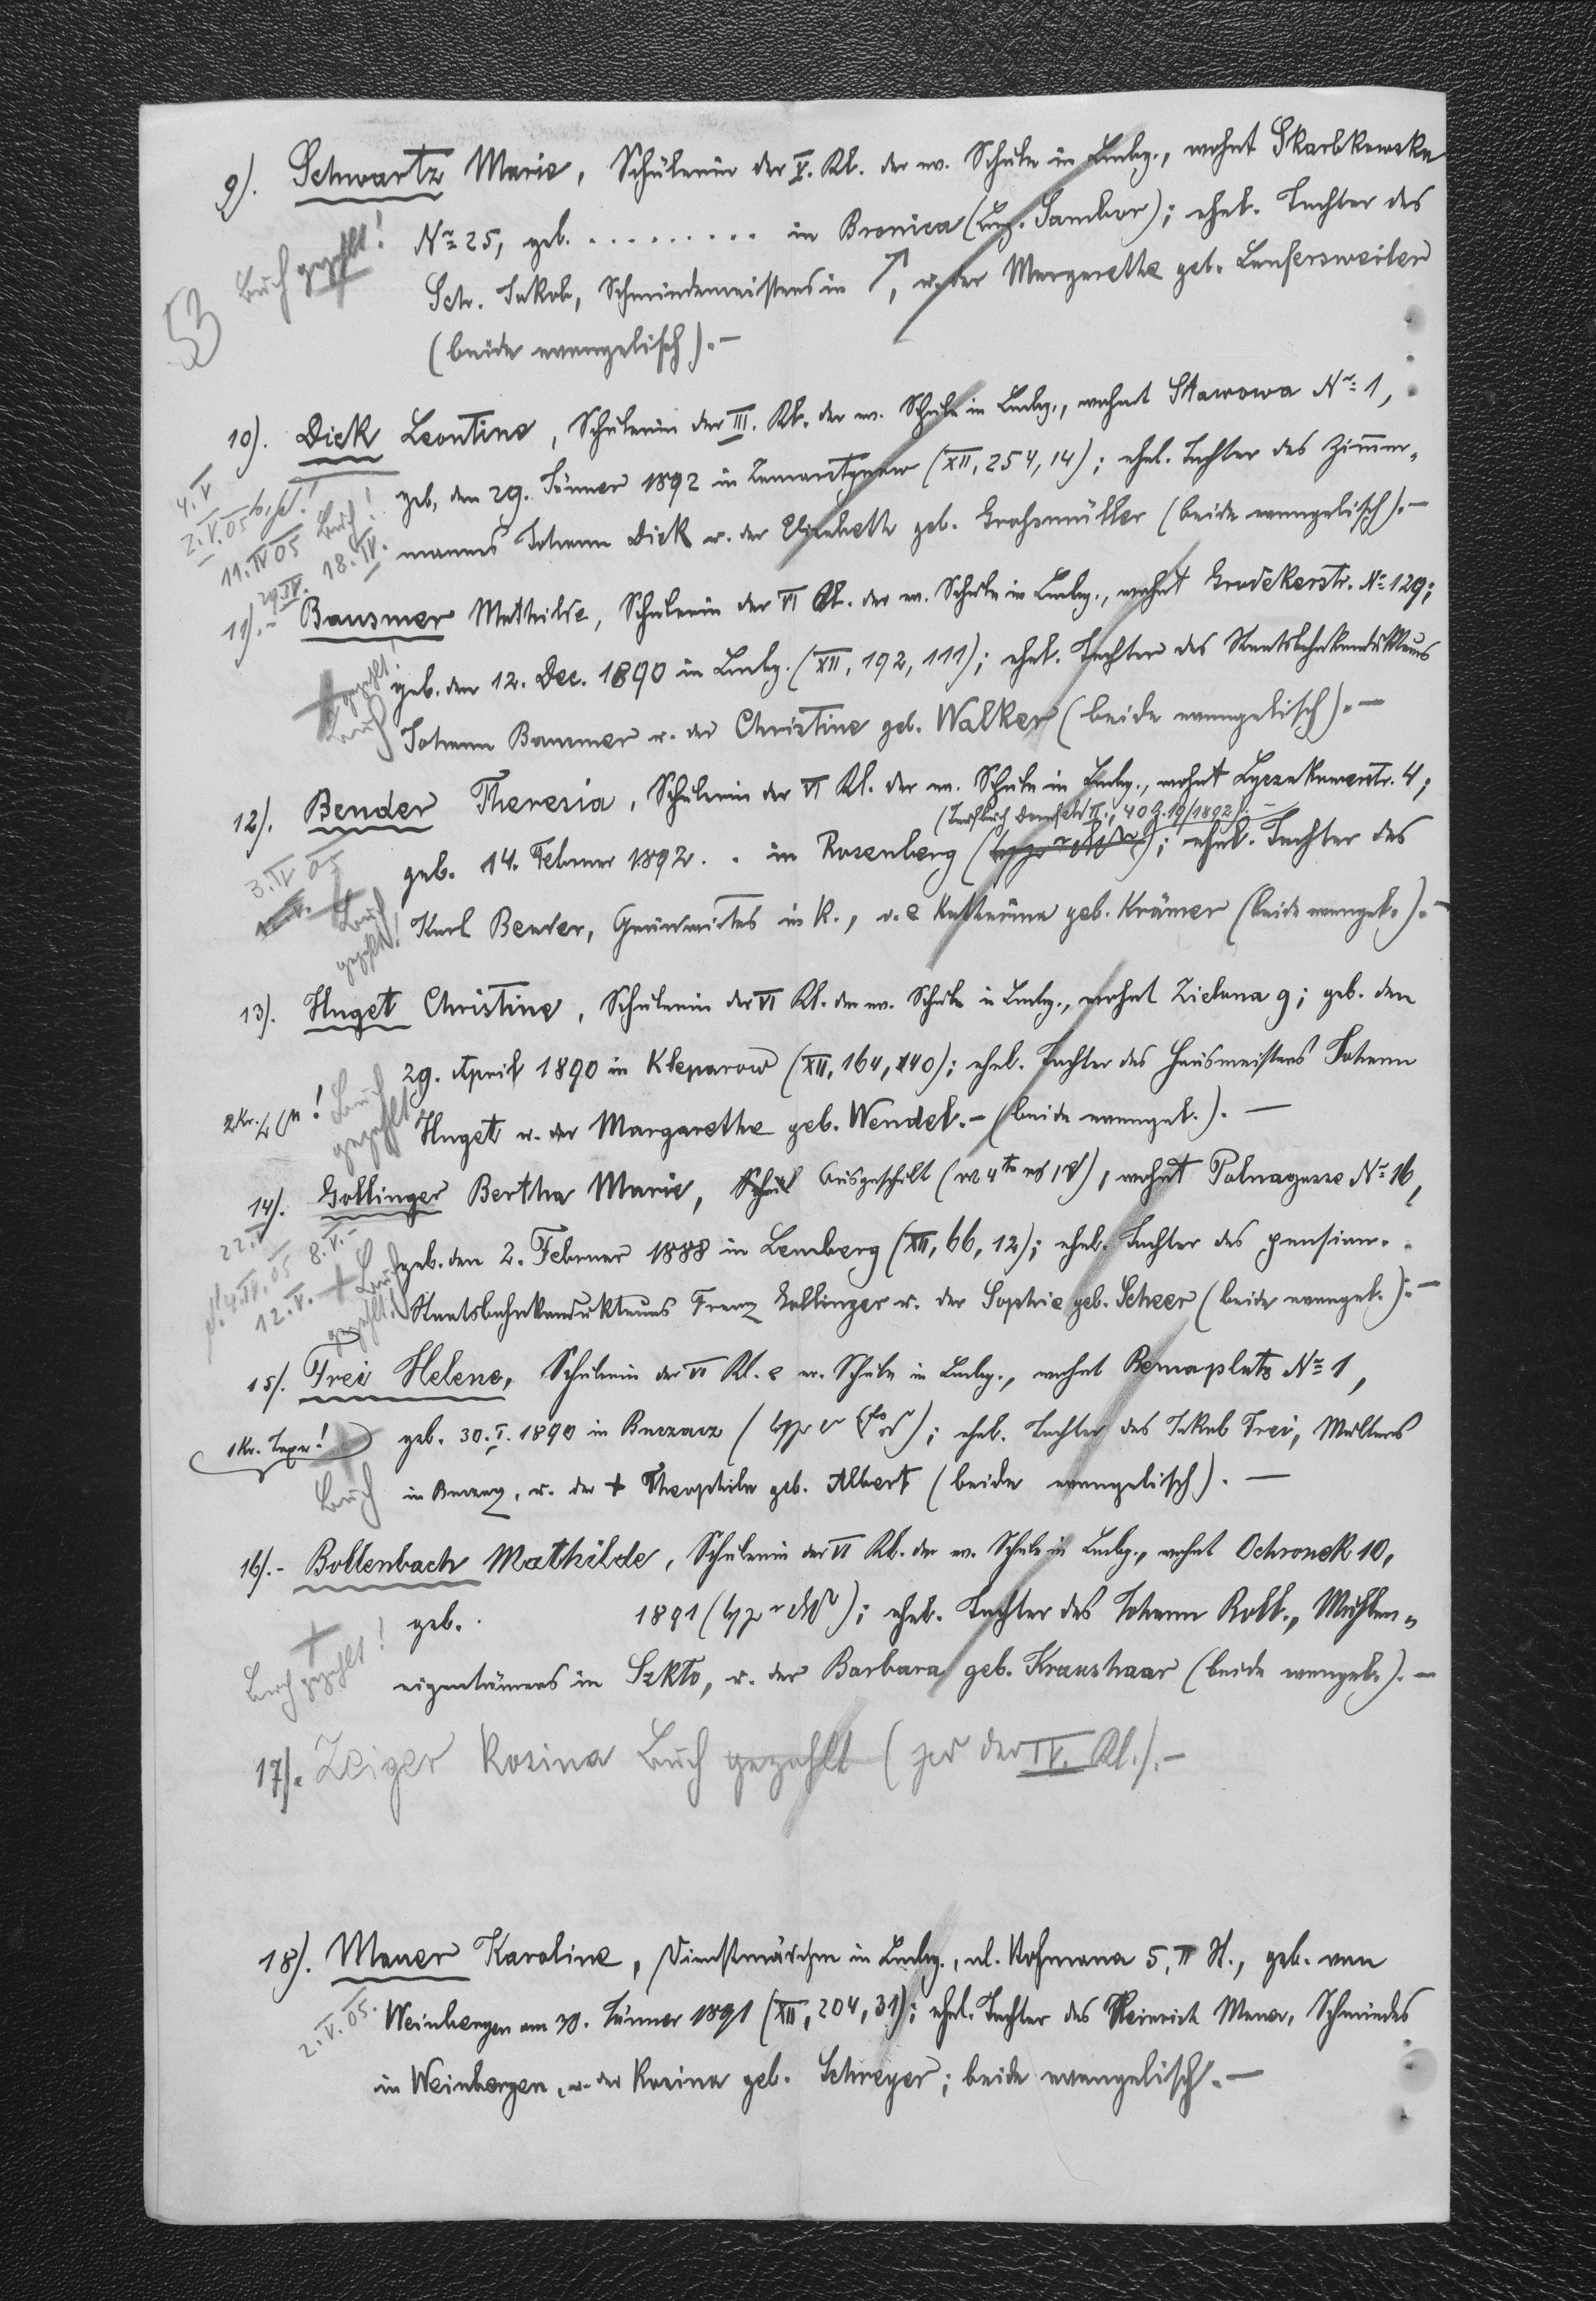 9). Schwartz Marie, Schülerin der V. Kl. der ev. Schule in Lmbg., wohnt Skarbkowska
N° 25, geb. ......... in Bronica (Bez. Sambor); ehel. Tochter des
Buch gezahlt!
53
Sch. Jakob, Schmiedemeisters in ↗, u. der Margarethe geb. Laufersweiler
(beide evangelisch).–
10). Dick Leontine, Schülerin der III. Kl. der ev. Schule in Lmbg., wohnt Stawowa N° 1,
4. V
2. V. 05
geb. den 29. Jänner 1892 in (XII, 254, 14); ehel. Tochter des Zimmer-
11. IV 05 Buch!
18. IV.
mannes Johann Dick u. der Elisabeth geb. Grohsmüller (beide evangelisch).–
29. IV.
11).- Bausmer Mathilde, Schülerin der VI Kl. der ev. Schule in Lmbg., wohnt Grodekerstr. N° 129;
+ gezahlt!
Buch
geb. den 12. Dec. 1890 in Lmbg. (XII, 192, 111); ehel. Tochter des Staatsbahnkondukteurs
Johann Bausmer u. der Christine geb. Walker (beide evangelisch).–
12). Bender Theresia, Schülerin der VI Kl. der ev. Schule in Lmbg., wohnt Lyczakowerstr. 4;
(Taufbuch Dornfeld II., 40 Z. 10/1892).–
3. IV 05
geb. 14. Februar 1892. . in Rosenberg; ehel. Tochter des
Buch
gezahlt!
Karl Bender, Grundwirtes in R., u. Katharina geb. Krämer (beide evangel.).–
13). Huget Christine, Schülerin der VI Kl. der ev. Schule in Lmbg., wohnt Zielona 9; geb. den
29. April 1890 in Kleparow (XII, 164, 140); ehel. Tochter des Hausmeisters Johann
2 Kr. !
Buch
gezahlt
Huget u. der Margarethe geb. Wendel.– (beide evangel.).–
14). Gollinger Bertha Marie, Ausgeschult, wohnt Polnagasse N° 16,
22. V
8. V.–
geb. den 2. Februar 1888 in Lemberg (XII, 66, 12); ehel. Tochter des pension.
4. IV. 05
12. V. + Buch
gezahlt!
Staatsbahnkondukteurs Franz Gollinger u. der Sophie geb. Scheer (beide evangel.).–
15). Frei Helene, Schülerin der VI Kl. ev. Schule in Lmbg., wohnt Bemaplatz N° 1,
1 Kr. Taxe!
geb. 30. I. 1890 in Buczacz; ehel. Tochter des Jakob Frei, Müllers
Buch
in Buczacz, u. der + Theophila geb. Albert (beide evangelisch).–
16).- Bollenbach Mathilde, Schülerin der VI Kl. der ev. Schule in Lmbg., wohnt Ochronek 10,
geb. 1891; ehel. Tochter des Johann Boll., Mühlen-
+
Buch gezahlt!
eigentümers in Szkto, u. der Barbara geb. Kraushaar (beide evangel.).–
17). Zeiger Rosina Buch gezahlt (der IV. Kl.).–
18). Mauer Karoline, Dienstmädchen in Lmbg., ul. Hofmana 5, II St., geb. von
2. V. 05.
Weinbergen am 30. Jänner 1891 (XII, 204, 31); ehel. Tochter des Heinrich Mauer, Schmiedes
in Weinbergen, u. der Rosina geb. Schreyer; beide evangelisch.–